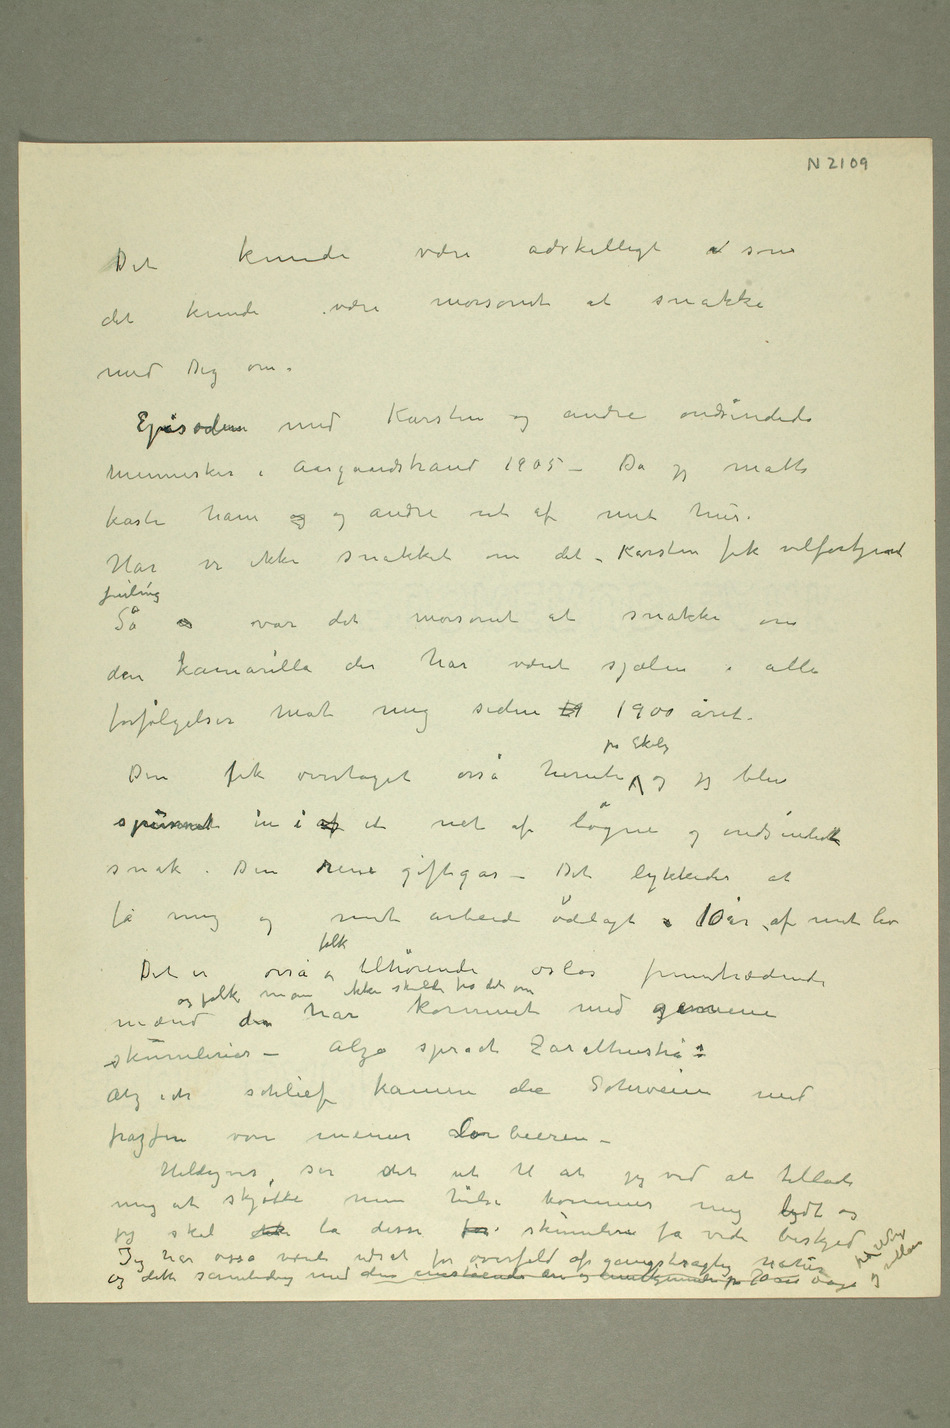 N 2109
Det kunde være adskilligt som
det kunde være morsomt at snakke
med Dig om.
Episoden med Karsten og andre ondsindede
mennesker i Aasgaardstrand 1905 – Da jeg matte
kaste ham og og andre ut af mit hus.
Har vi ikke snakket om det – Karsten fik velfortjent
juling
Så var det morsomt at snakke om
den kamarilla der har været sjælen i alle
forfølgelser mot mig siden 1900 året.
på Skøy
Den fik overtaget også hernede og jeg blev
spunnet in i af et net af løgne og ondsindet
snak. Den rene giftgas – Det lykkedes at
få mig og mit arbeide ødelagt i 10 år af mit liv
folk
Det er også tilhørende oslos fremtrædende
og folk man ikke skulde tro det om
mænd der har kommet med gemene
skumlerier – Alzo sprach Zarathustra:
Alz ich schlief kamen die Schweine und
frazsen von meiner Lorbeeren –
Heldigvis ser det ut til at jeg ved at tillade
mig at skjøtte min hilse kommer mig lydt og
jeg skal ikke la disse for skumlere få vide beskjed
Jeg har også været udsat for overfald af gangsteragtig natur
og dette samtidig med den